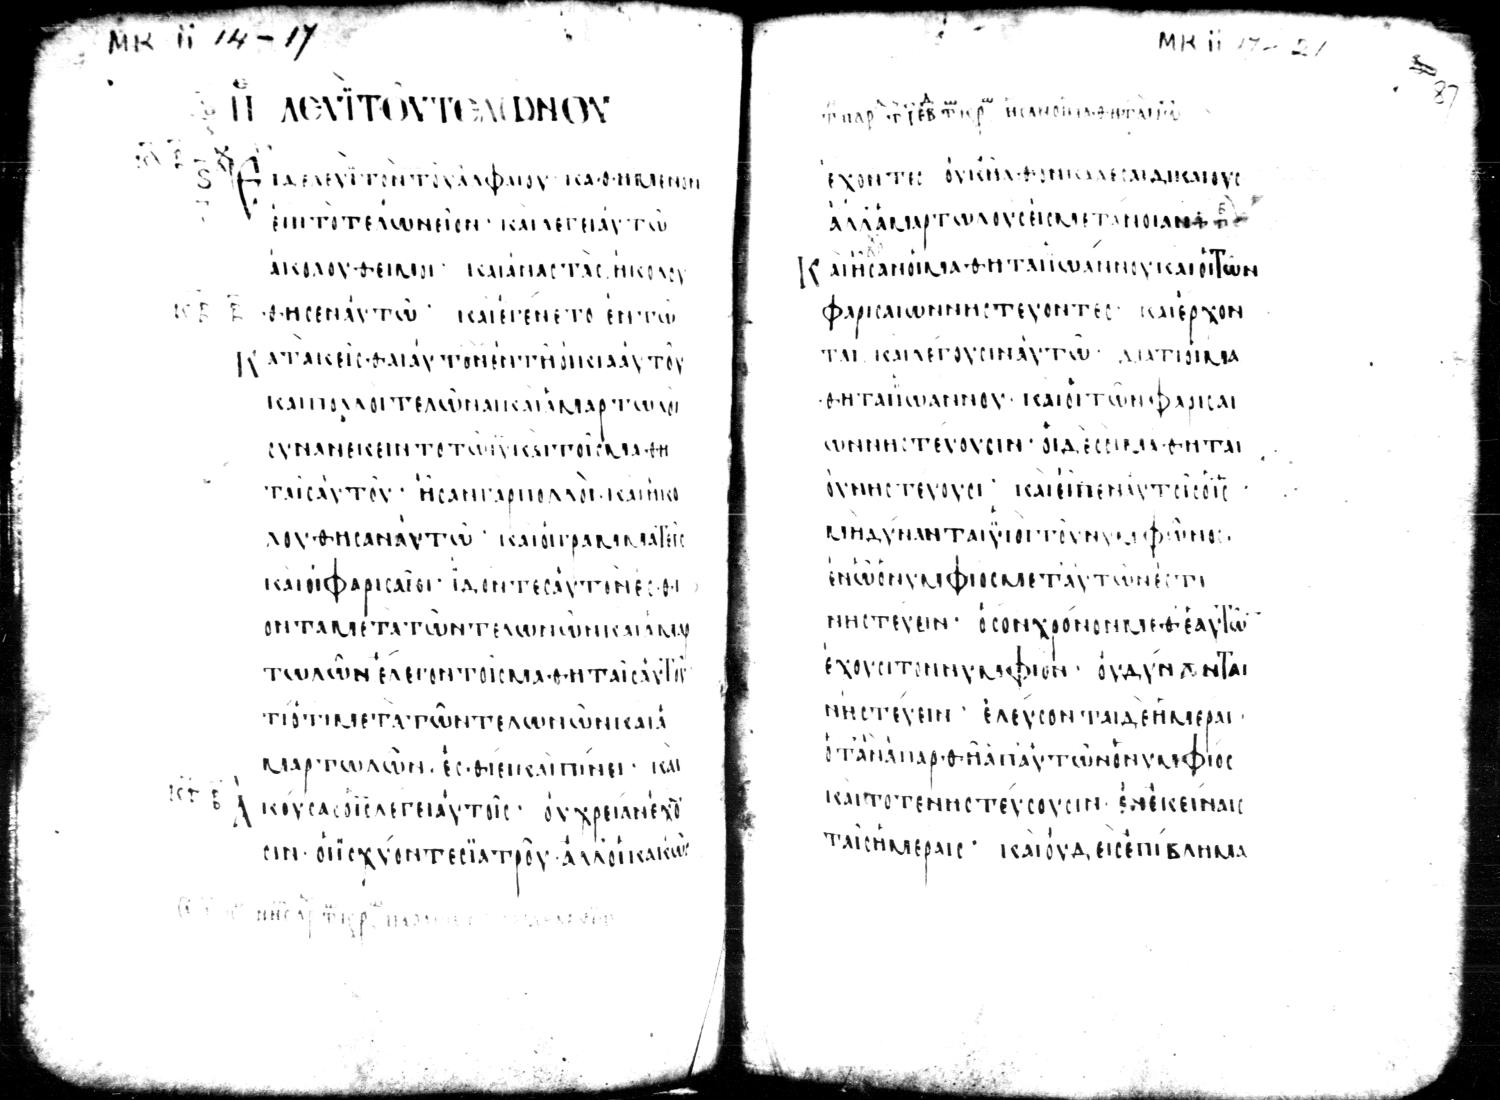 ΜΚ ii 14-17
ΠΕ ΛΕΥΪ ΤΟΥ ΤΕΛΩΝΟΥ
Εἶδε λευῒ τὸν τοῦ ἀλφαίου · καθήμενον
ἐπὶ τὸ τελώνειον · καὶ λέγει αὐτῶ
ἀκολούθει μοι · καὶ ἀναστὰς ἠκολού
θησεν αὐτῶ · καὶ ἐγένετο ἐν τῶ
Κατακεῖσθαι αὐτὸν ἐν τῆ οἰκία αὐτοῦ
καὶ πολλοὶ τελῶναι καὶ ἁμαρτωλοὶ
συνανέκειντο τῶ ἰῡ καὶ τοῖς μαθη
ταῖς αὐτοῦ · ἦσαν γὰρ πολλοὶ · καὶ ἠκο
λούθησαν αὐτῶ · καὶ οἱ γραμματεῖς
καὶ οἱ φαρισαῖοι · ἰδόντες αὐτὸν ἐσθί
οντα μετὰ τῶν τελωνῶν καὶ ἁμαρ
τωλῶν ἔλεγον τοῖς μαθηταῖς αὐτοῦ ·
τί ὅτι μετὰ τῶν τελωνῶν καὶ ἁ
μαρτωλῶν · ἐσθίει καὶ πίνει · καὶ
Ἀκούσας ὁ ἰς λέγει αὐτοῖς · οὐ χρείαν ἔχου
σιν · οἱ ἰσχύοντες ἰατροῦ · ἀλλ οἱ κακῶς
ΜΚ ii 17-21
87
ἔχοντες οὐκ ἦλθον καλέσαι δικαίους
ἀλλὰ ἁμαρτωλοὺς εἰς μετάνοιαν
Καὶ ἦσαν οἱ μαθηταὶ ἰωάννου καὶ οἱ τῶν
φαρισαίων νηστεύοντες · καὶ ἔρχον
ται καὶ λέγουσιν αὐτῶ · διατί οἱ μα
θηταὶ ἰωάννου · καὶ οἱ τῶν φαρισαί
ων νηστεύουσιν · οἱ δὲ σοὶ μαθηταὶ
οὐ νηστεύουσι · καὶ εἶπεν αὐτοῖς ὁ ἰς ·
μὴ δύνανται υἱοὶ τοῦ νυμφῶνος ·
ἐν ὧ ὁ νυμφίος μετ αὐτῶν ἐστι
νηστεύειν · ὅσον χρόνον μεθ ἑαυτῶν
ἔχουσι τὸν νυμφίον · οὐ δύνανται
νηστεύειν · ἐλεύσονται δὲ ἡμέραι ·
ὅταν ἀπαρθῆ ἀπ αὐτῶν ὁ νυμφίος
καὶ τότε νηστεύσουσιν · ἐν ἐκείναις
ταῖς ἡμέραις · καὶ οὐδεὶς ἐπίβλημα